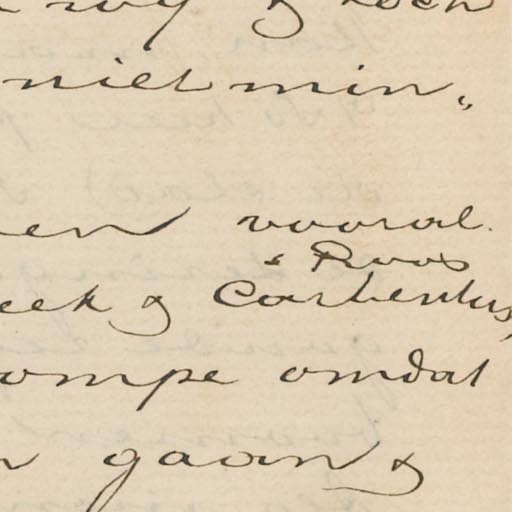 niet min„
en vooral
& Roos
eek & Carbentus,
ompe omdat
n gaan &